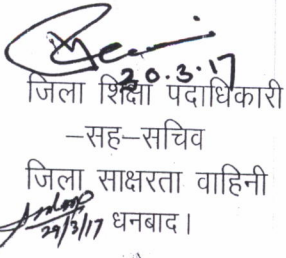 20.3.17
जिला शिक्षा पदाधिकारी
–सह–सचिव
जिला साक्षरता वाहिनी
29/3/17 धनबाद।